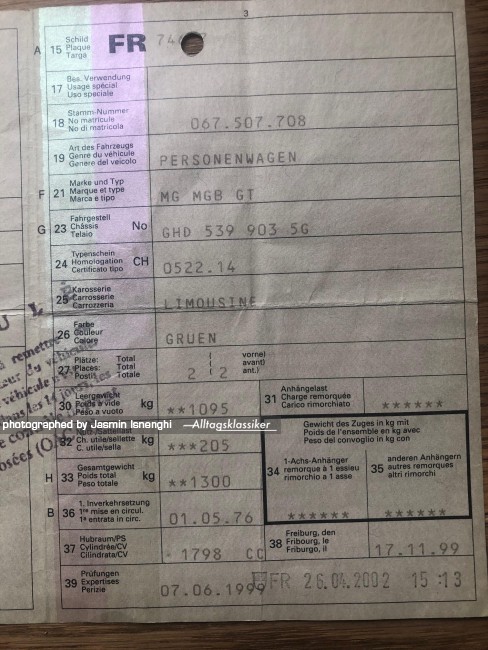 3
A 15 Schild Plaque Targa FR
17 Bes. Verwendung Usage spécial Uso speciale
18 Stamm-Nummer No matricule No di matricola 067.507.708
19 Art des Fahrzeugs Genre du véhicule Genere del veicolo PERSONENWAGEN
F 21 Marke und Typ Marque et type Marca e tipo MG MGB GT
G 23 Fahrgestell Châssis Telaio No GHD 539 903 5G
24 Typenschein Homologation Certificato tipo CH 0522.14
25 Karosserie Carrosserie Carrozzeria LIMOUSINE
26 Farbe Couleur Colore GRUEN
27 Plätze: Places: Posti: Total Total Totale 2 2 vorne) avant) ant.)
30 Leergewicht Poids à vide Peso a vuoto kg **1095
31 Anhängelast Charge remorquée Carico rimorchiato ******
photographed by Jasmin Isnenghi —Alltagsklassiker
32 Ch. utile/sellette C. utile/sella kg ***205
Gewicht des Zuges in kg mit
Poids de l'ensemble en kg avec
Peso del convoglio in kg con
H 33 Gesamtgewicht Poids total Peso totale kg **1300
34 1-Achs-Anhänger remorque à 1 essieu rimorchio a 1 asse ******
35 anderen Anhängern autres remorques altri rimorchi ******
B 36 1. Inverkehrsetzung 1re mise en circul. 1a entrata in circ. 01.05.76
37 Hubraum/PS Cylindrée/CV Cilindrata/CV 1798 CC
38 Freiburg, den Fribourg, le Friburgo, il 17.11.99
39 Prüfungen Expertises Perizie 07.06.1999 FR 26.04.2002 15:13